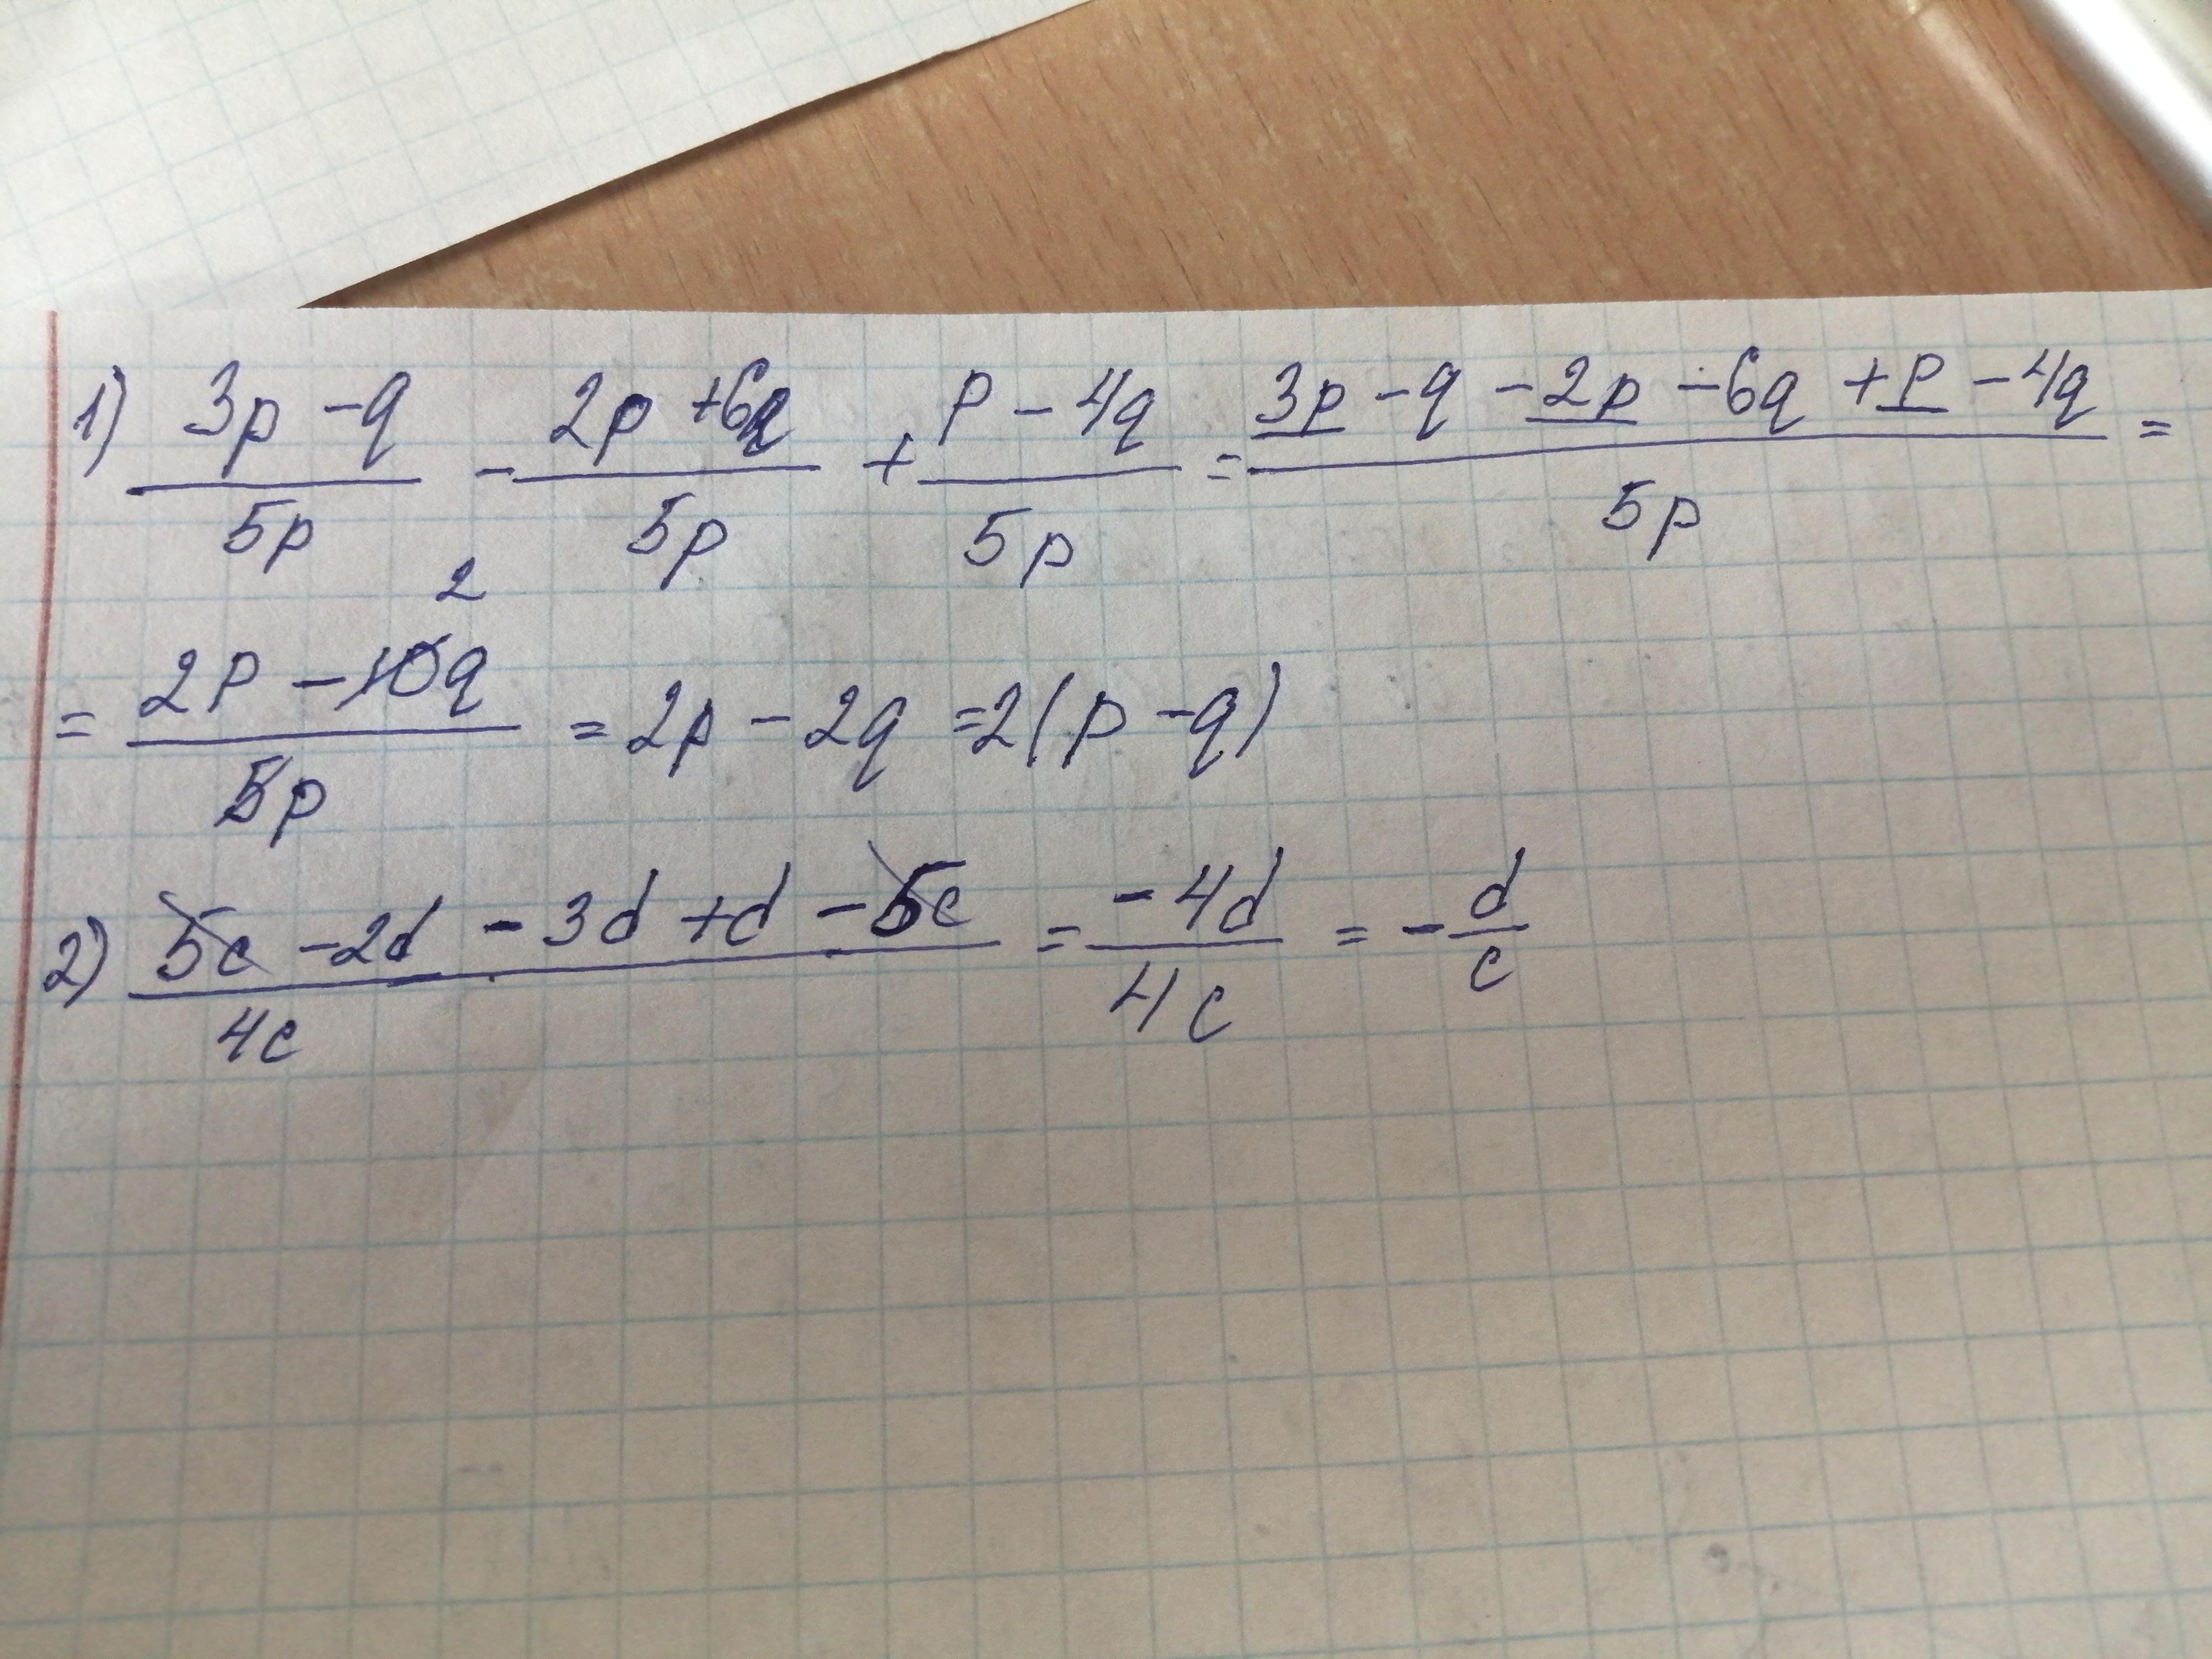 1) (3p - q)/5p - (2p + 6q)/5p + (p - 4q)/5p = (3p - q - 2p - 6q + p - 4q)/5p =
2
= (2p - 10q)/5p = 2p - 2q = 2(p - q)
2) (5c - 2d - 3d + d - 5c)/4c = (-4d)/4c = - d/c